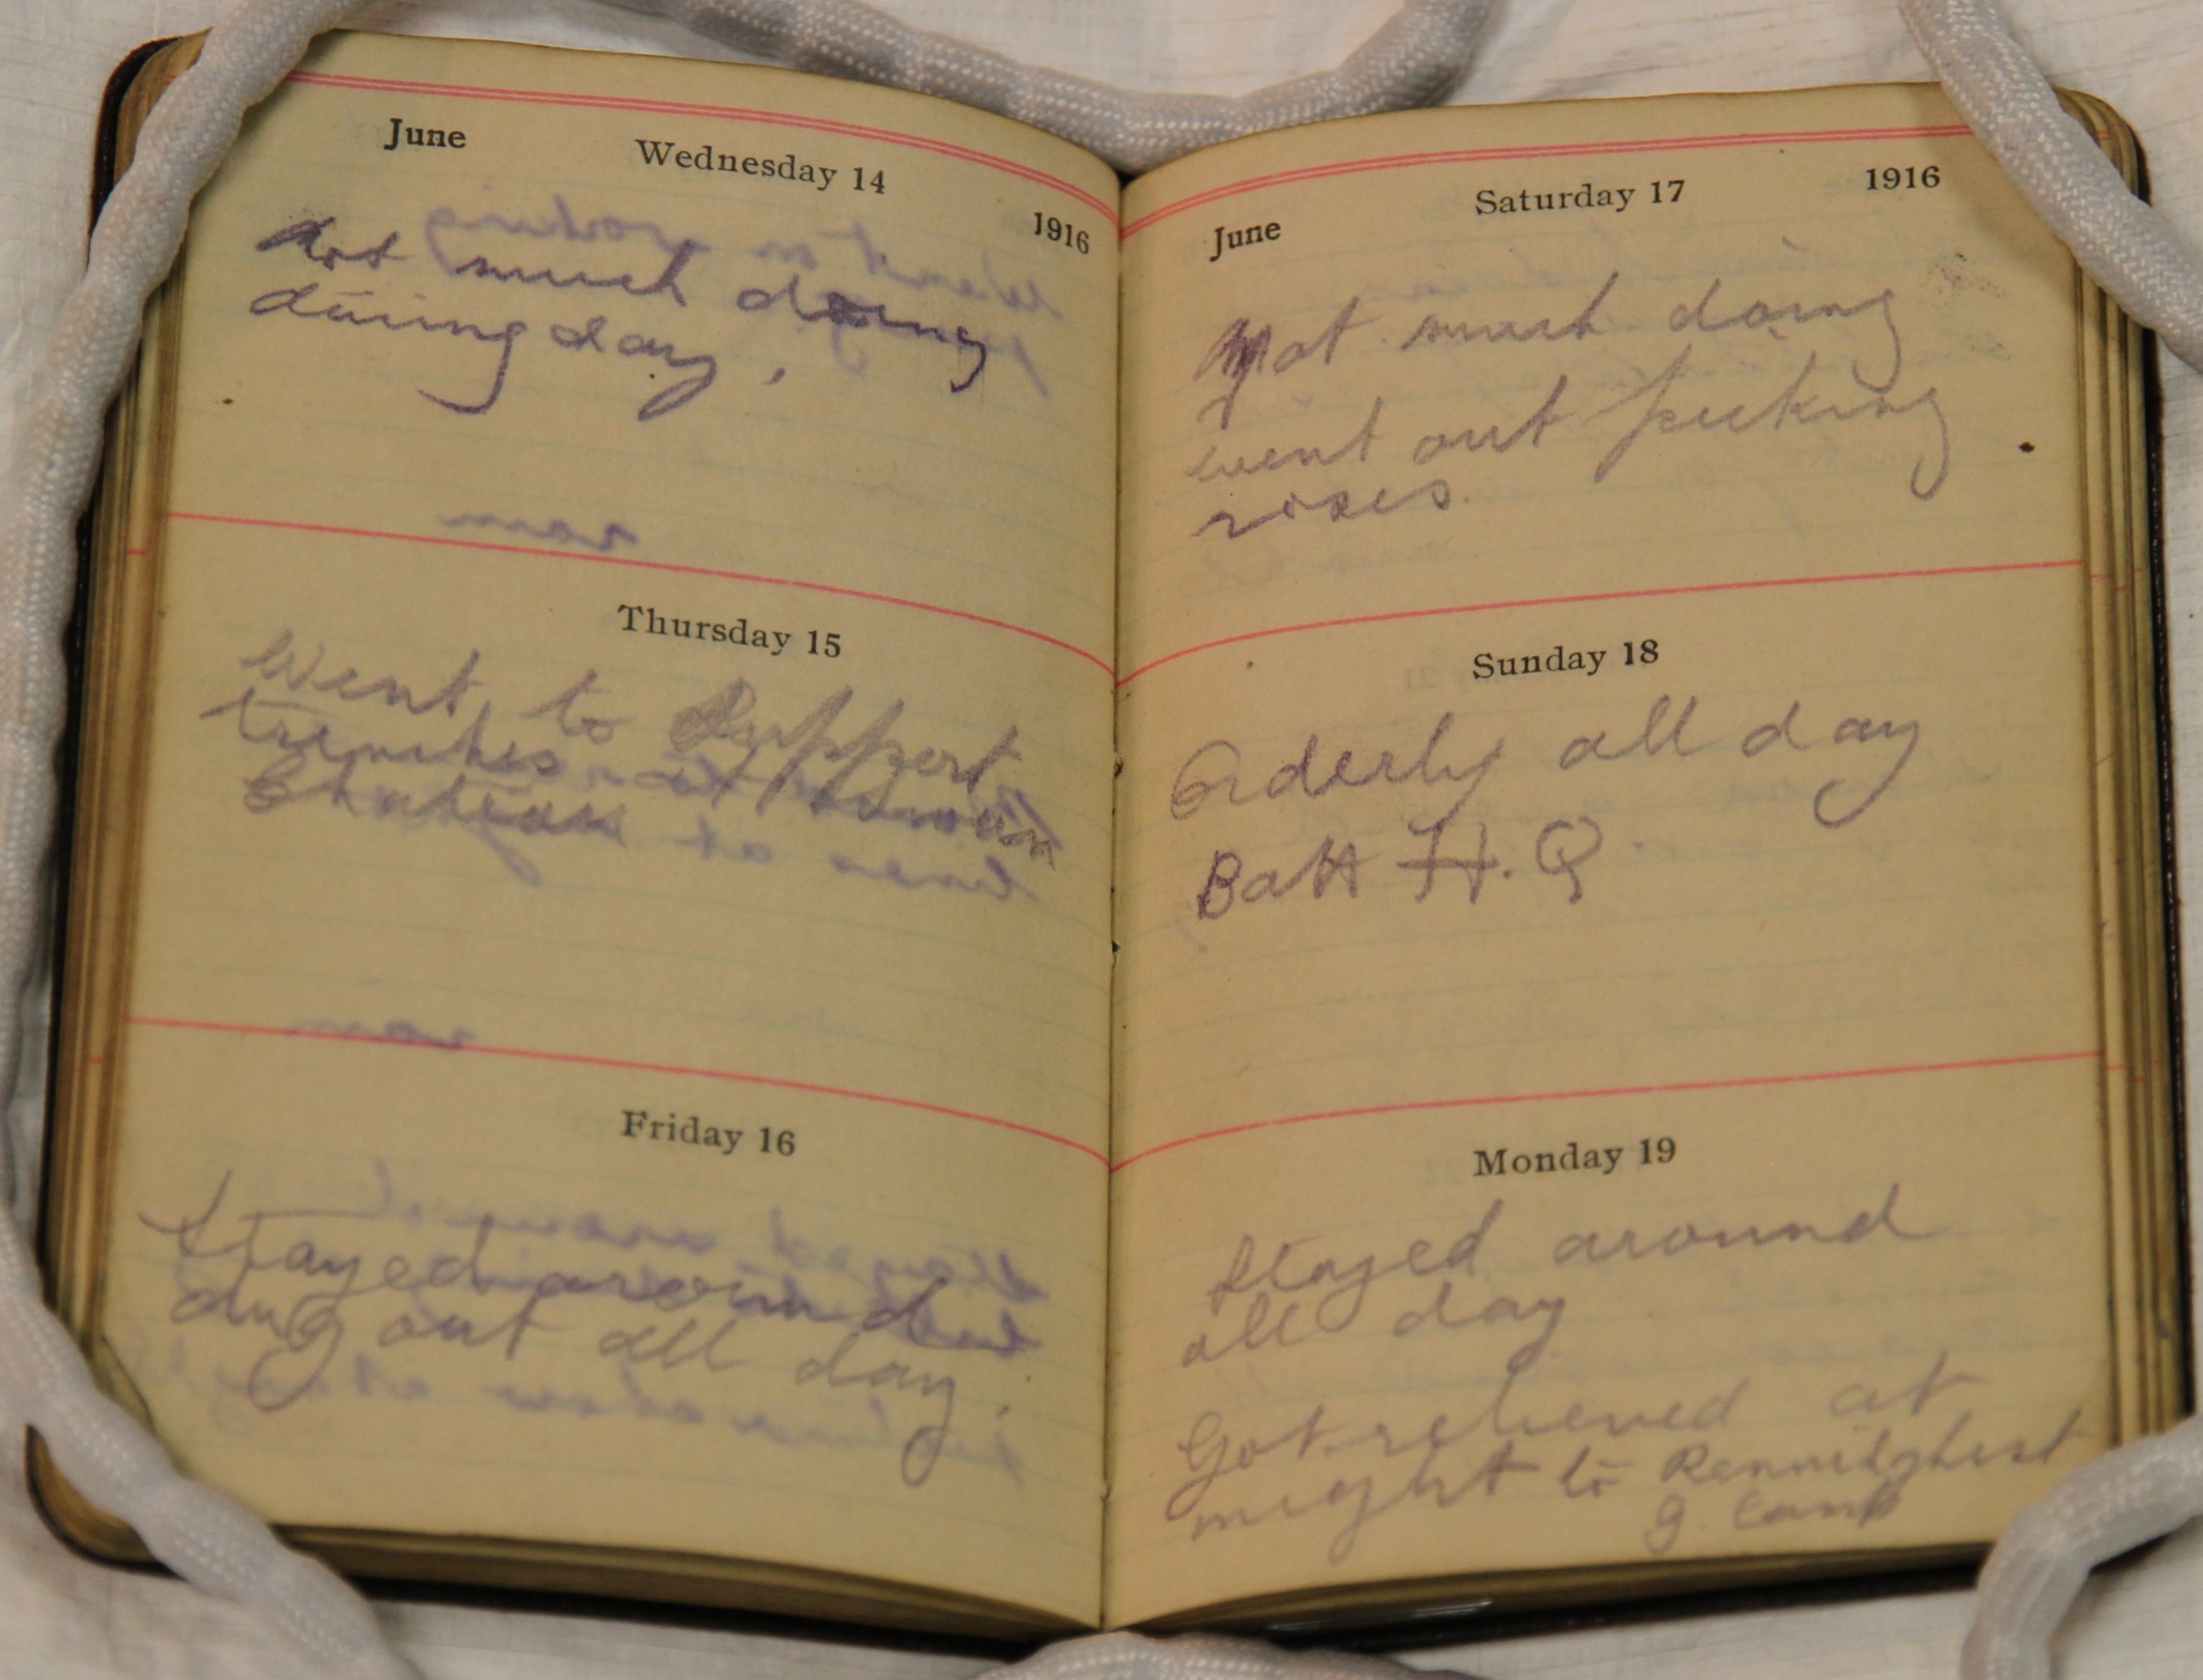 June Wednesday 14 1916
Not much doing
during day,
Thursday 15
Went to Support
trenches
Chateau
Friday 16
Stayed around
dug out all day.
June Saturday 17 1916
Not much doing
went out picking
roses.
Sunday 18
Orderly all day
Batt H.Q.
Monday 19
Stayed around
all day
Got relieved at
night to
g. Camp